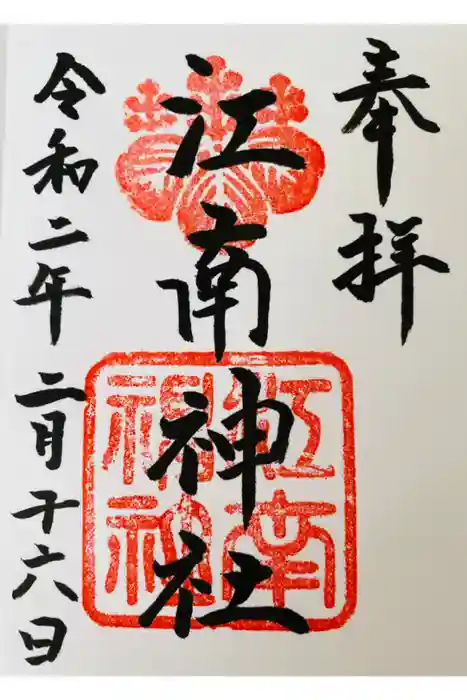 奉拝
江南神社
令和二年二月十六日
江南
神社